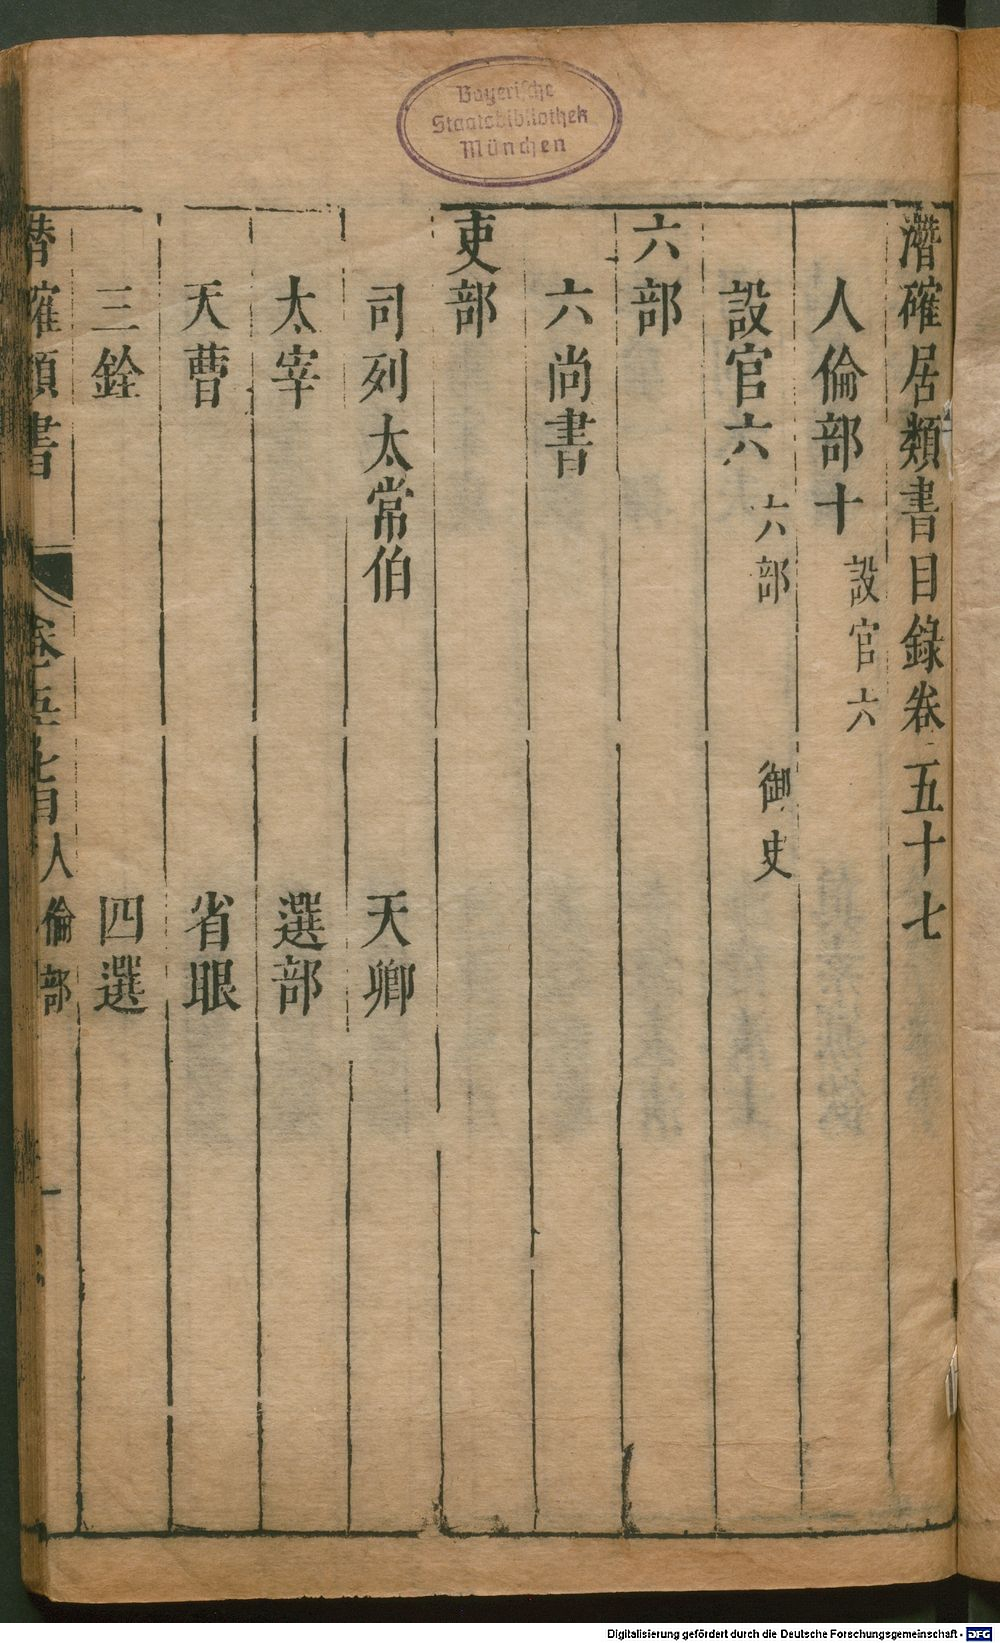 Bayerische
Staatsbibliothek
München
潛確居類書目錄卷五十七
人倫部十 設官六
設官六 六部 御史
六部
六尚書
吏部
司列太常伯 天卿
太宰 選部
天曹 省眼
三銓 四選
潛確類書 卷五七目 人倫部 一
Digitalisierung gefördert durch die Deutsche Forschungsgemeinschaft - DFG